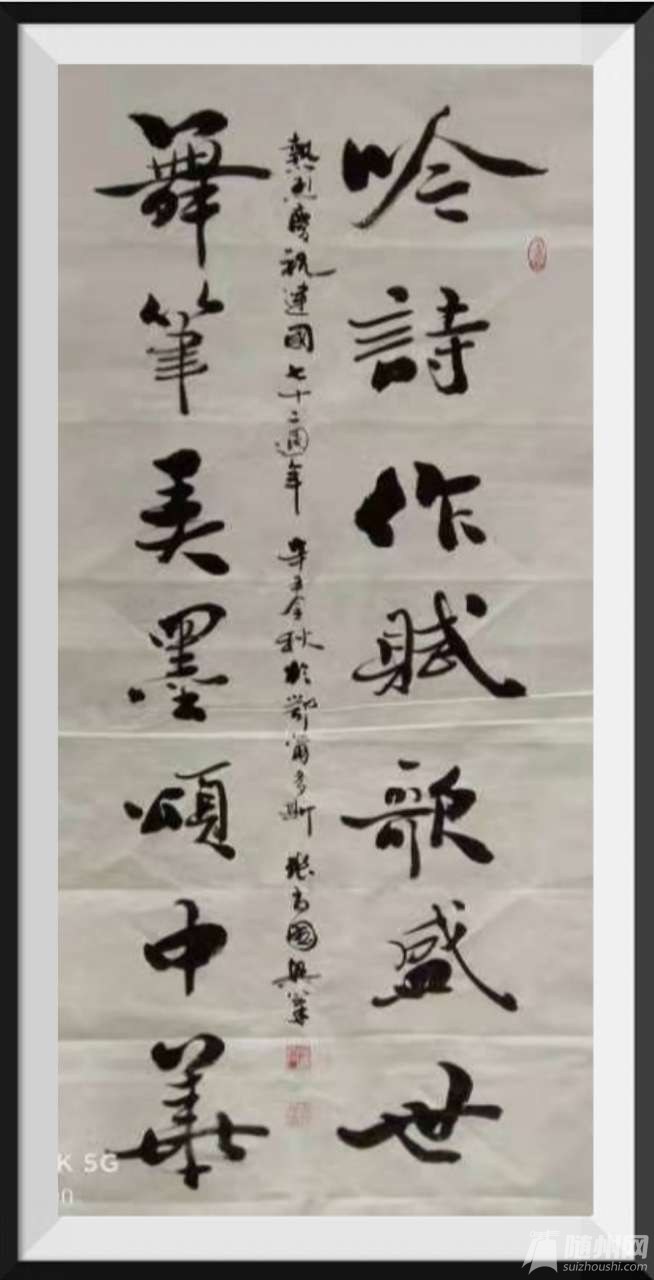 吟詩作賦歌盛世
熱烈慶祝建國七十二周年 辛丑金秋於鄂爾多斯 張高國興筆
舞筆美墨頌中華
K 5G
00
随州网
suizhoushi.com